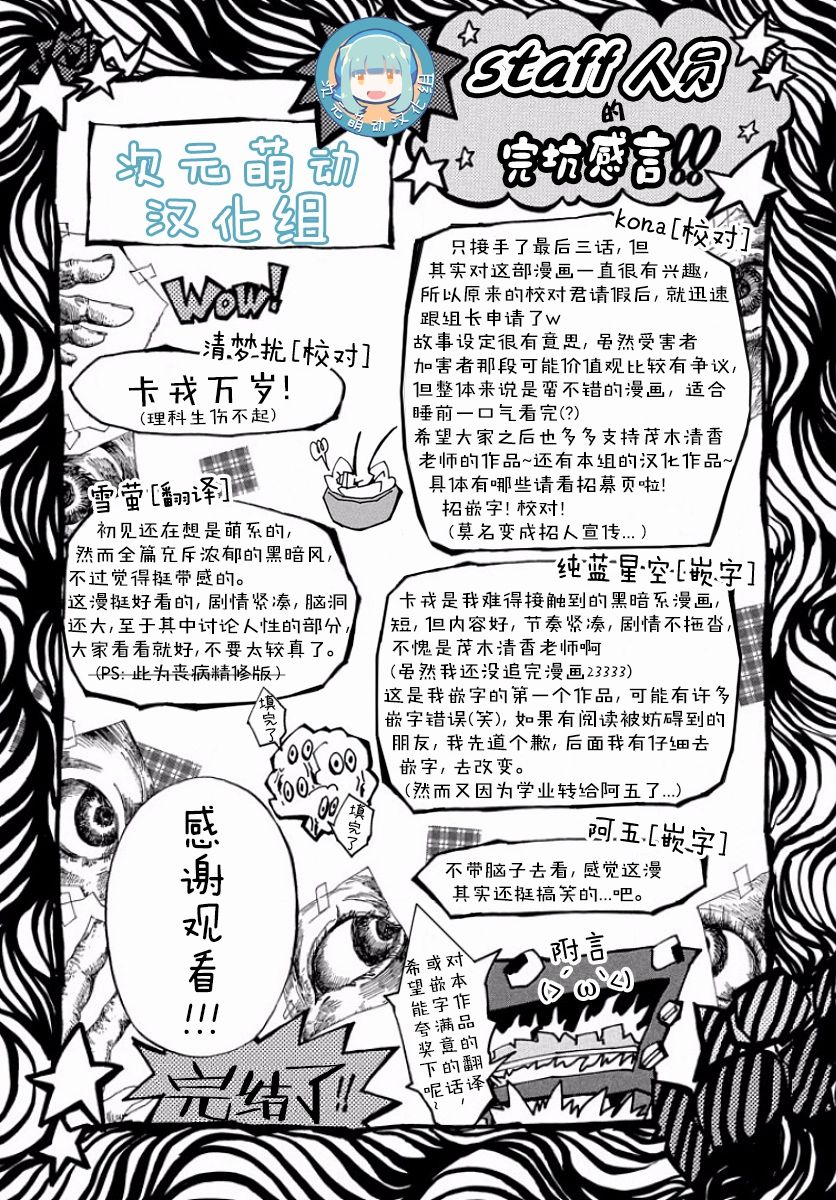 次元萌动汉化组
staff人员
的
完坑感言!!
次元萌动
汉化组
Wow!
kona[校对]
只接手了最后三话, 但
其实对这部漫画一直很有兴趣,
所以原来的校对君请假后, 就迅速
跟组长申请了w
故事设定很有意思, 虽然受害者
加害者那段可能价值观比较有争议,
但整体来说是蛮不错的漫画, 适合
睡前一口气看完(?)
希望大家之后也多多支持茂木清香
老师的作品~还有本组的汉化作品~
具体有哪些请看招募页啦!
招嵌字! 校对!
(莫名变成招人宣传...)
清梦扰[校对]
卡戎万岁!
(理科生伤不起)
雪萤[翻译]
初见还在想是萌系的,
然而全篇充斥浓郁的黑暗风,
不过觉得挺带感的。
这漫挺好看的, 剧情紧凑, 脑洞
还大, 至于其中讨论人性的部分,
大家看看就好, 不要太较真了。
(PS: 此为丧病精修版)
纯蓝星空[嵌字]
卡戎是我难得接触到的黑暗系漫画,
短, 但内容好, 节奏紧凑, 剧情不拖沓,
不愧是茂木清香老师啊
(虽然我还没追完漫画23333)
这是我嵌字的第一个作品, 可能有许多
嵌字错误(笑), 如果有阅读被妨碍到的
朋友, 我先道个歉, 后面我有仔细去
嵌字, 去改变。
(然而又因为学业转给阿五了...)
填完了
填完了
阿五[嵌字]
不带脑子去看, 感觉这漫
其实还挺搞笑的...吧。
感谢观看!!!
附言
(>´ω`<)
对本作品的翻译
或嵌字满意的话,
希望能夸奖下呢~
完结了!!